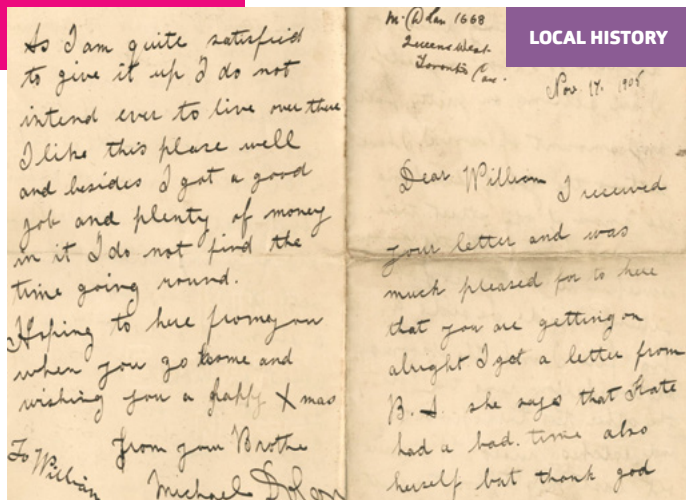 LOCAL HISTORY
As I am quite satisfied
to give it up I do not
intend ever to live over there
I like this plase well
and besides I got a good
job and plenty of money
in it I do not find the
time going round.
Hoping to here from you
when you go home and
wishing you a happy X mas
from your Brothe
To William
Michael Dolan
M. Dolan 1668
Queens West
Toronto Can.
Nov.
Dear William I received
your letter and was
much pleased for to here
that you are getting on
alright I got a letter from
B. J. she says that Kate
had a bad time also
herself but thank god